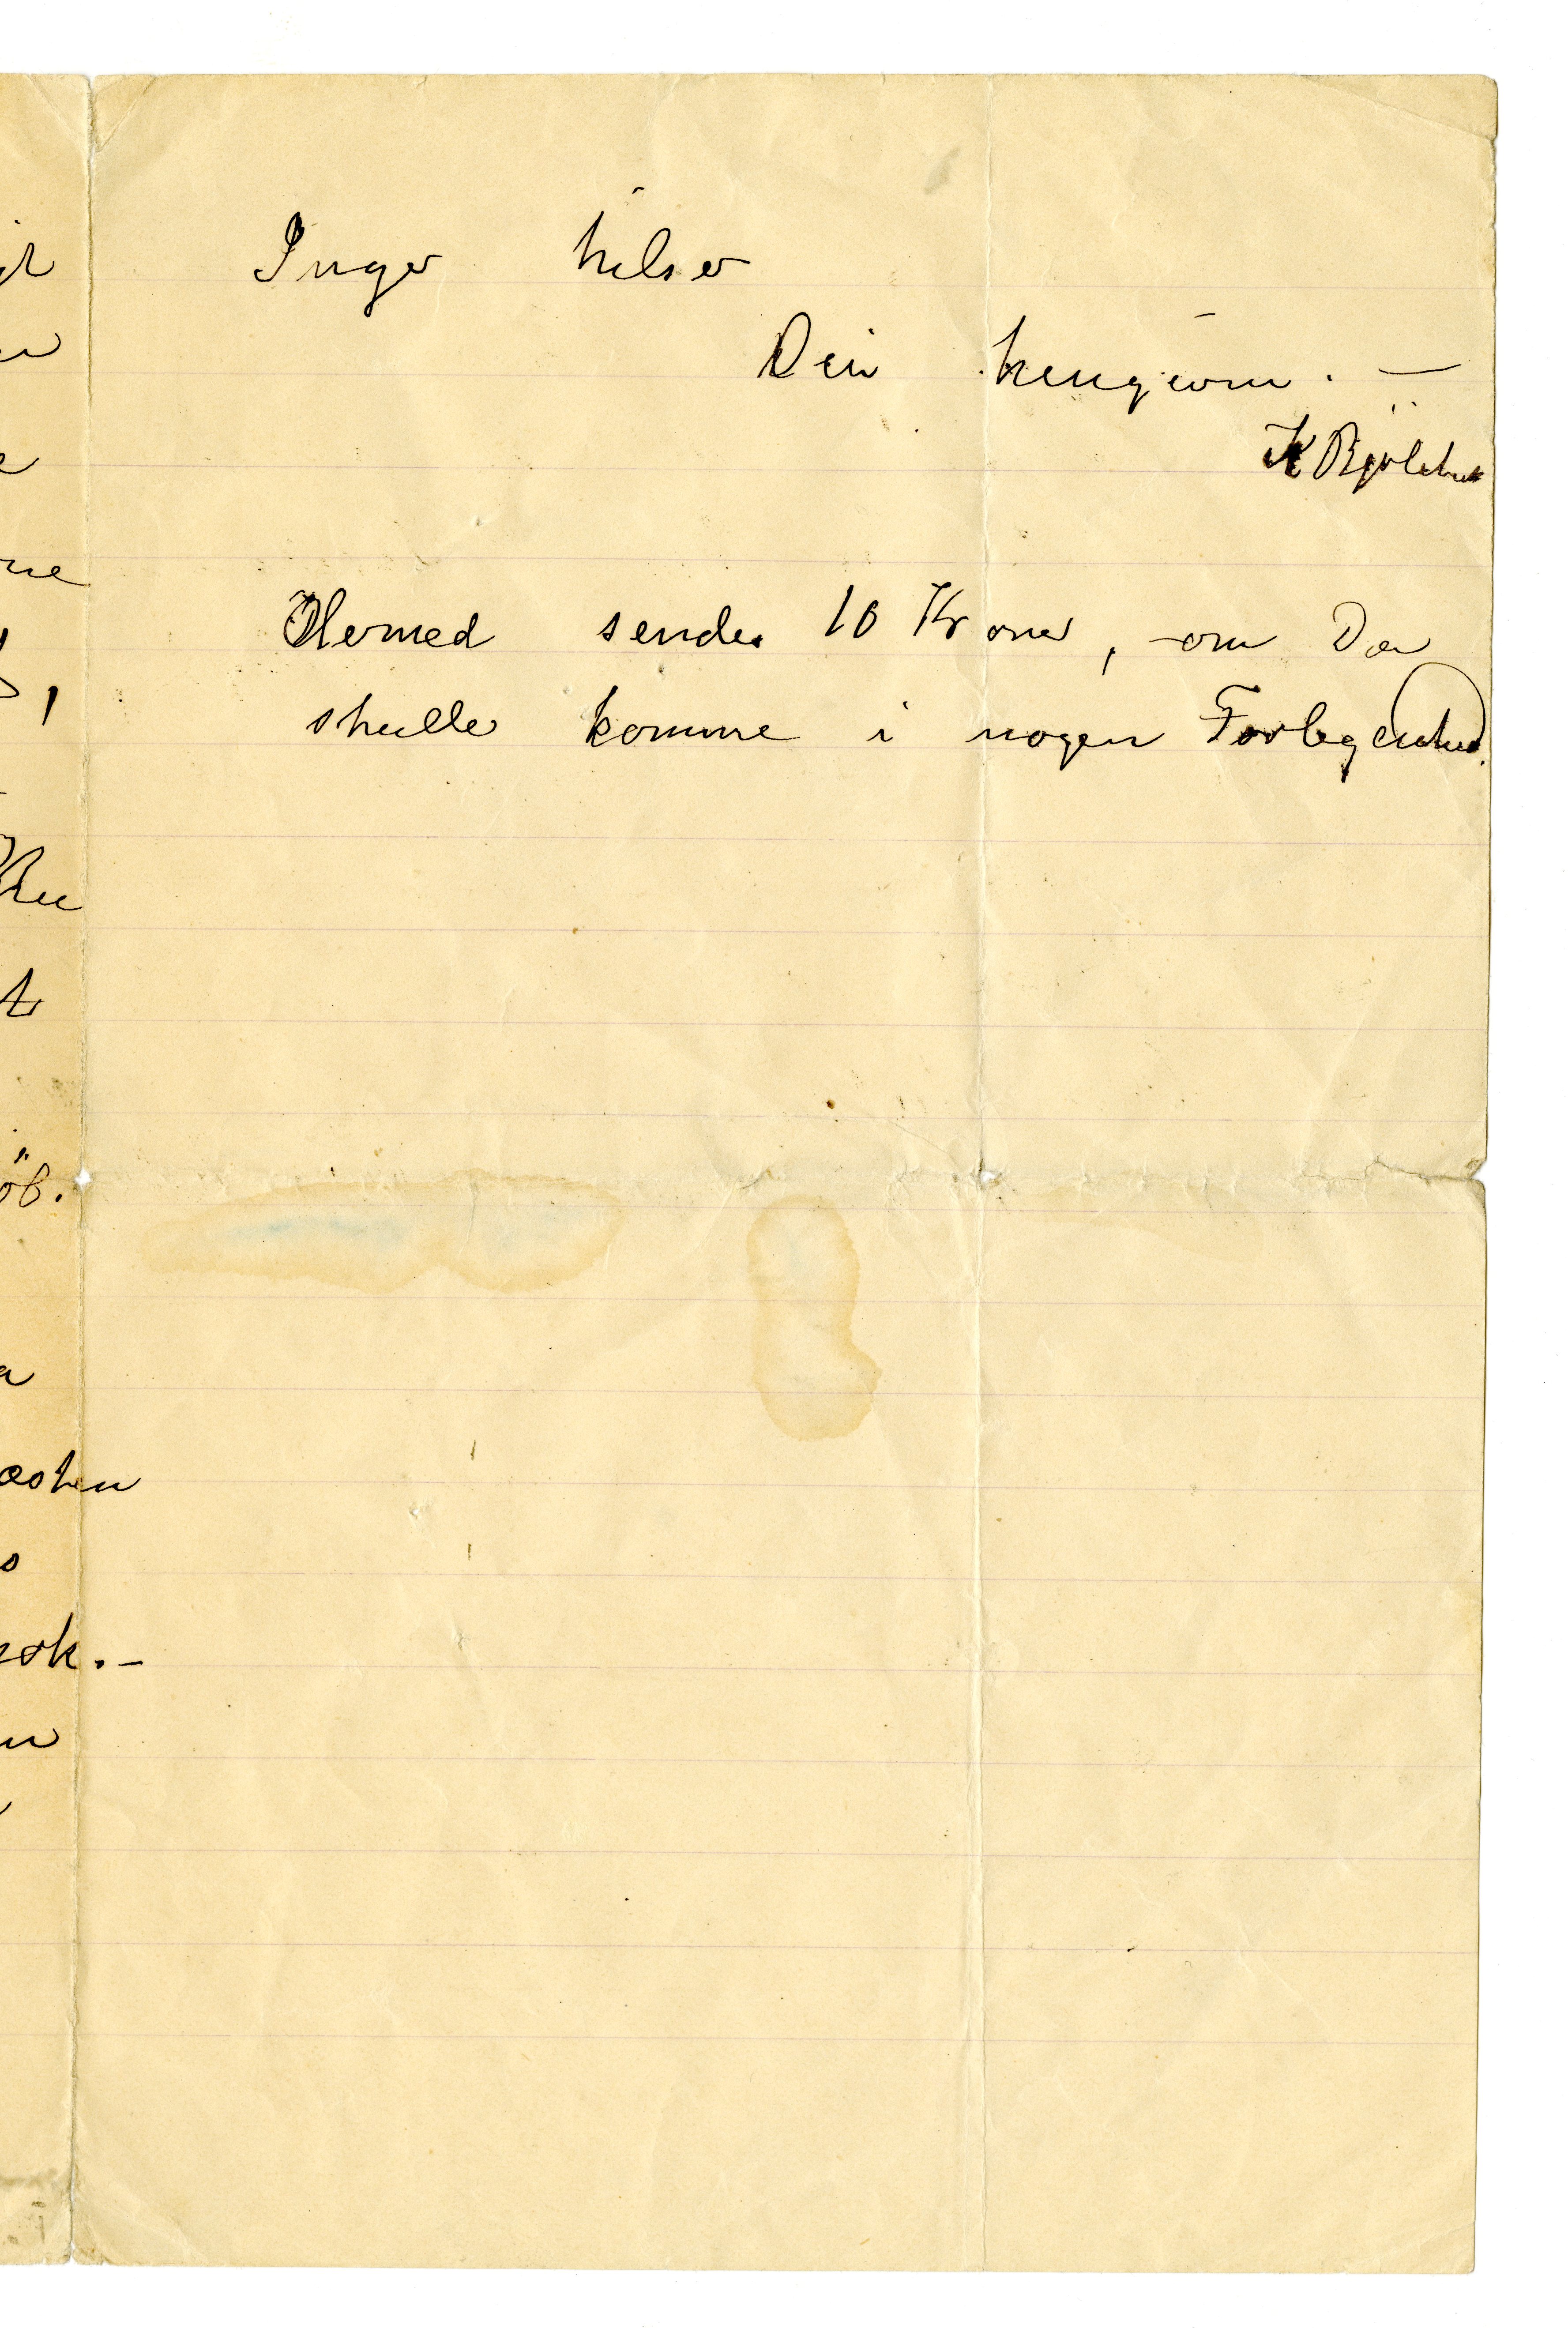 Inger hilser
Din hengivne. —
K Bjölstad
Hermed sendes 10 Kroner, om Du
skulle komme i nogen Forlegenhed.
ne
,
öb.
æsten
søk. –